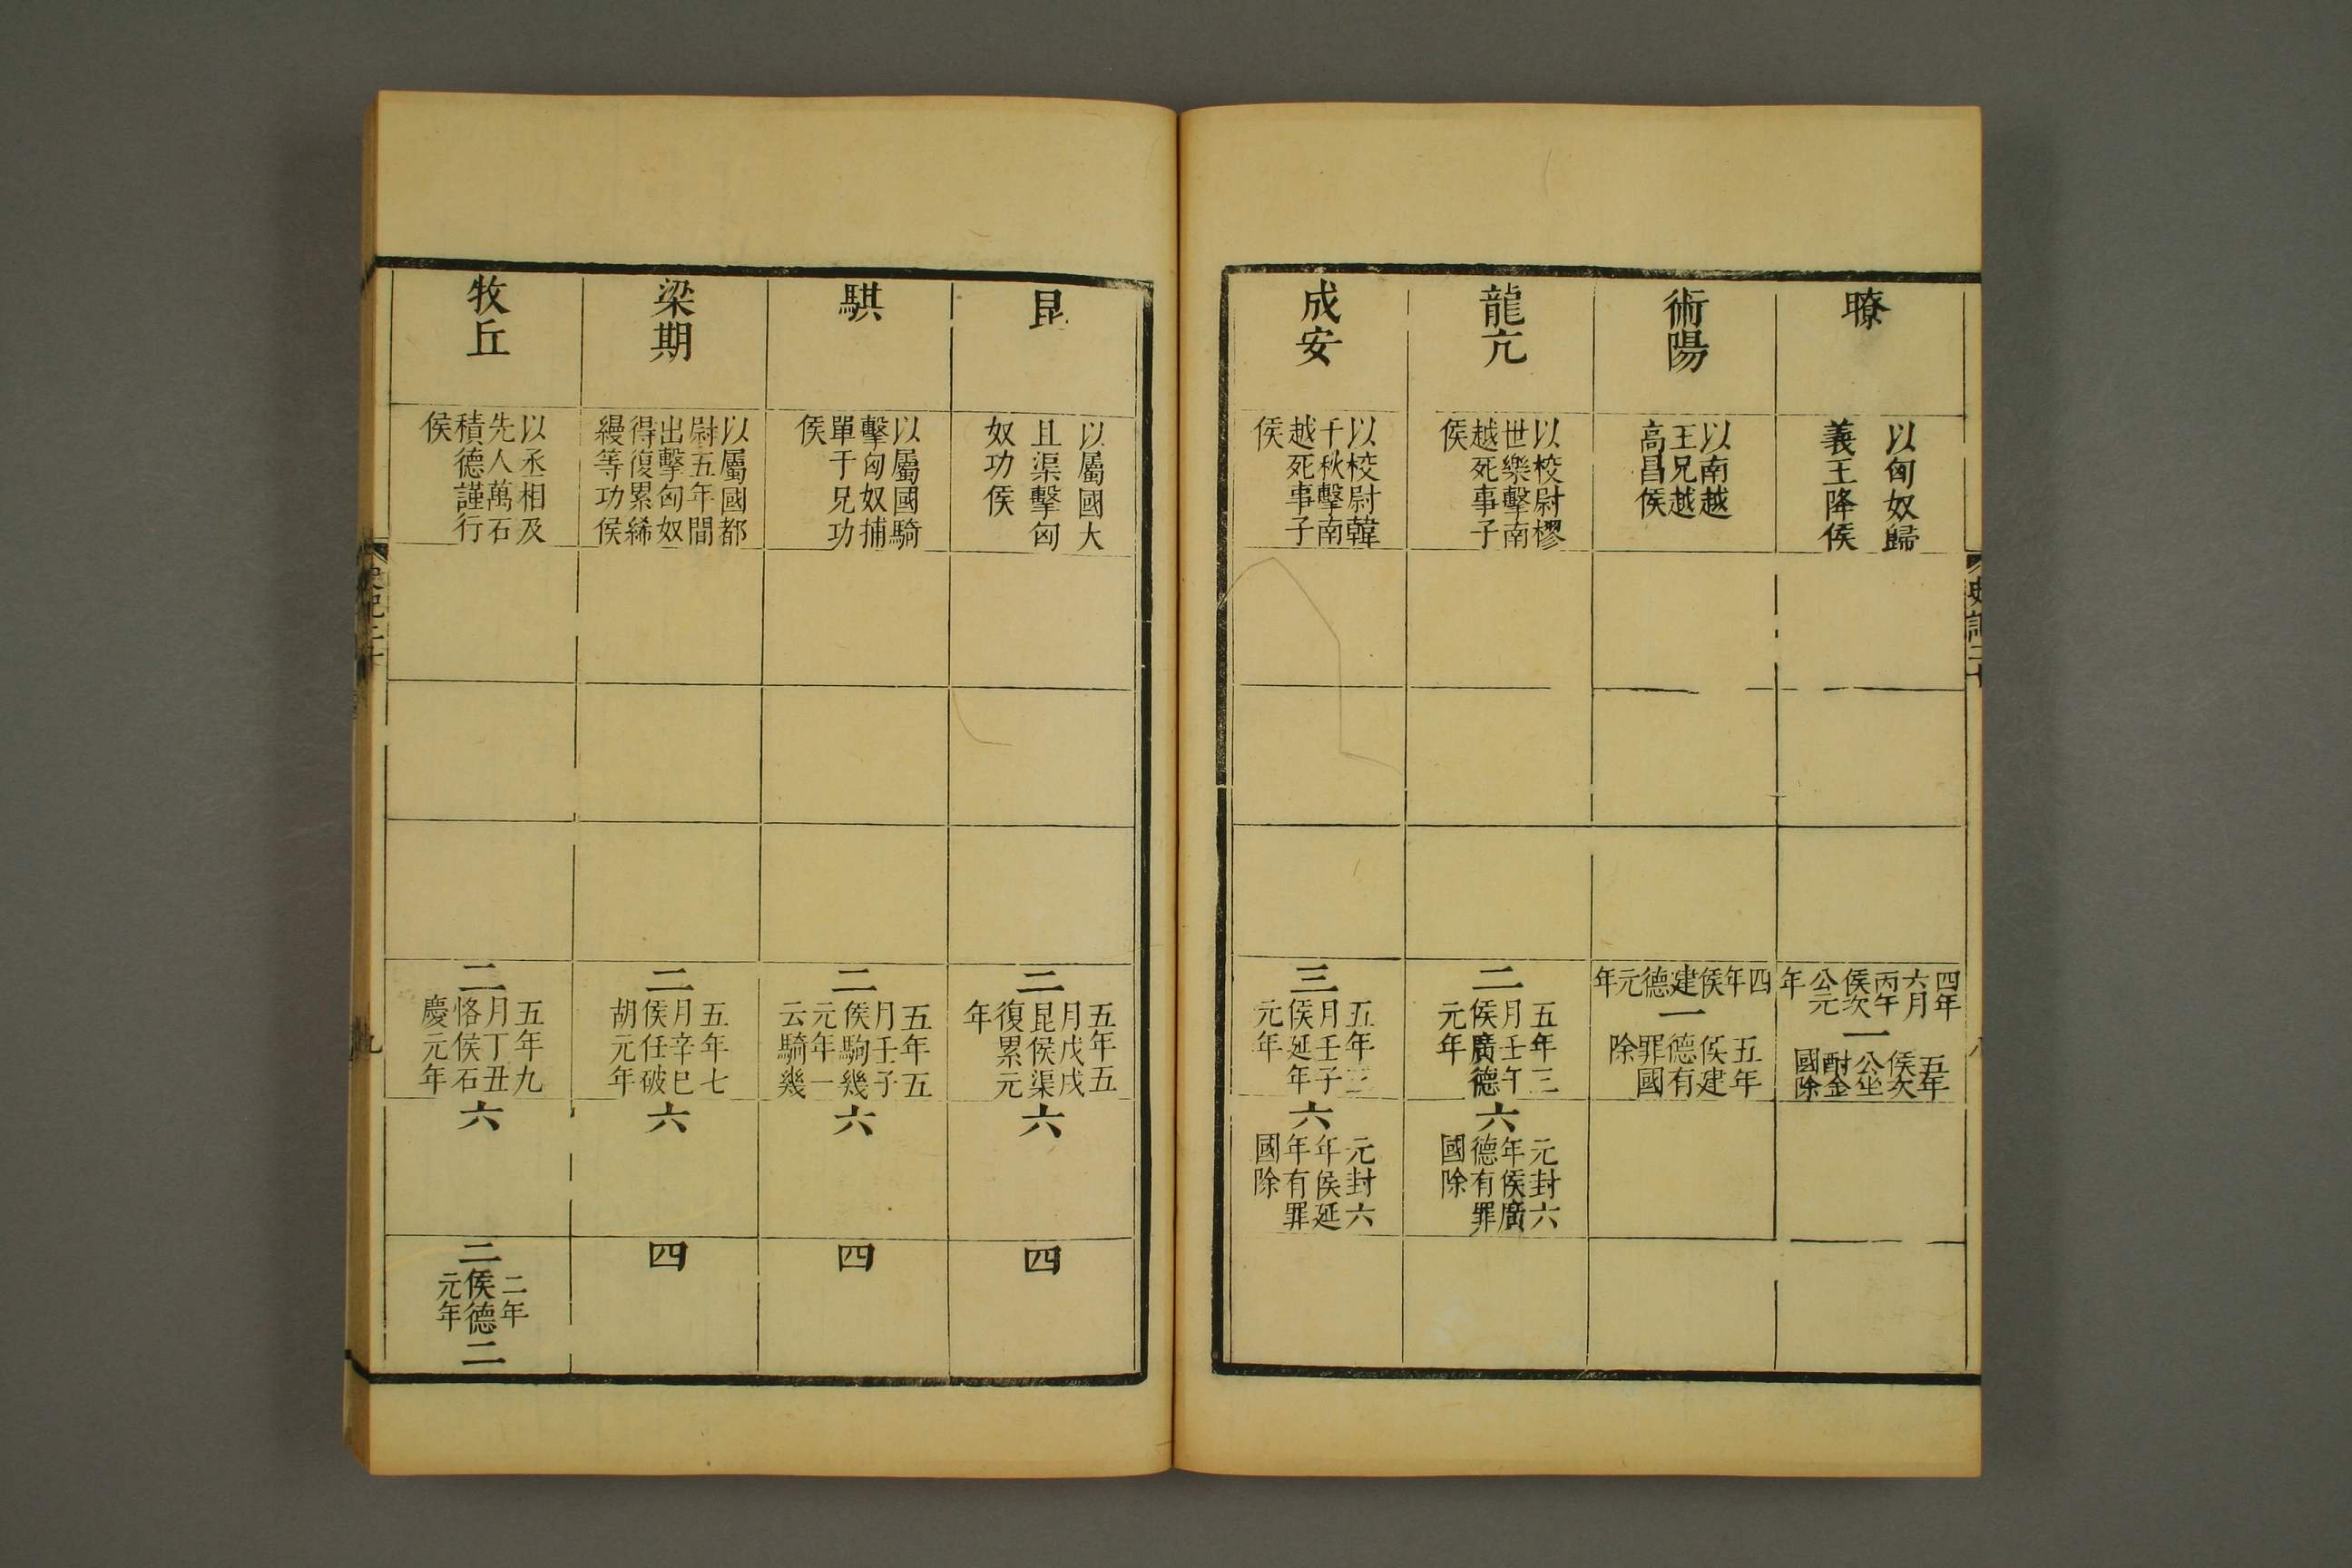 瞭
以匈奴歸
義王降侯
四年
六月
丙午
侯次
公元
年
一
五年
侯次
公坐
酎金
國除
術陽
以南越
王兄越
高昌侯
四年侯建德元年
一
五年
侯建
德有
罪國
除
龍亢
以校尉樛
世樂擊南
越死事子
侯
二
五年三
月壬午
侯廣德
元年
六
元封六
年侯廣
德有罪
國除
成安
以校尉韓
千秋擊南
越死事子
侯
三
五年三
月壬子
侯延年
元年
六
元封六
年侯延
年有罪
國除
昆
以屬國大
且渠擊匈
奴功侯
二
五年五
月戊戌
昆侯渠
復累元
年
六
四
騏
以屬國騎
擊匈奴捕
單于兄功
侯
二
五年五
月壬子
侯駒幾
元年一
云騎幾
六
四
梁期
以屬國都
尉五年間
出擊匈奴
得復累絺
縵等功侯
二
五年七
月辛巳
侯任破
胡元年
六
四
牧丘
以丞相及
先人萬石
積德謹行
侯
二
五年九
月丁丑
恪侯石
慶元年
六
二
二年
侯德
元年
二
九